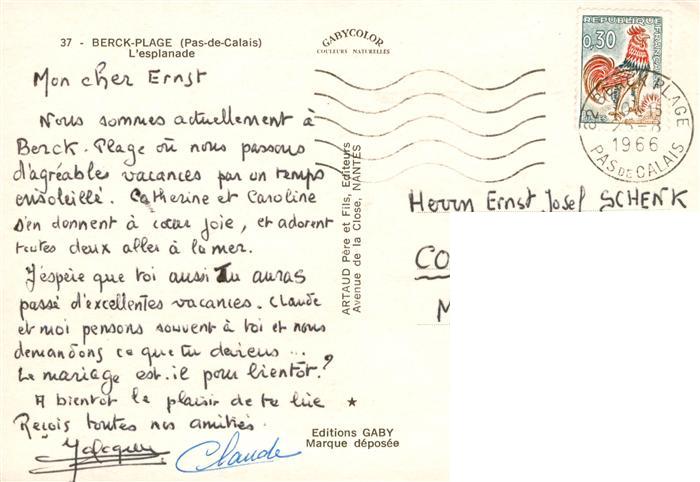 37 - BERCK-PLAGE (Pas-de-Calais)
L'esplanade
GABYCOLOR
COULEURS NATURELLES
Mon cher Ernst
Nous sommes actuellement à
Berck-Plage où nous passons
d'agréables vacances par un temps
ensoleillé. Catherine et Caroline
s'en donnent à cœur joie, et adorent
toutes deux aller à la mer.
J'espère que toi aussi Tu auras
passé d'excellentes vacances. Claude
et moi pensons souvent à toi et nous
demandons ce que tu deviens ...
Le mariage est-il pour bientôt?
A bientôt le plaisir de te lire
Reçois toutes nos amitiés.
Jacques
Claude
ARTAUD Père et Fils, Editeurs
Avenue de la Close, NANTES
Editions GABY
Marque déposée
REPUBLIQUE
FRANÇAISE
0,30
62 BERCK PLAGE
1966
PAS DE CALAIS
Herrn Ernst Josef SCHENK
CO
M